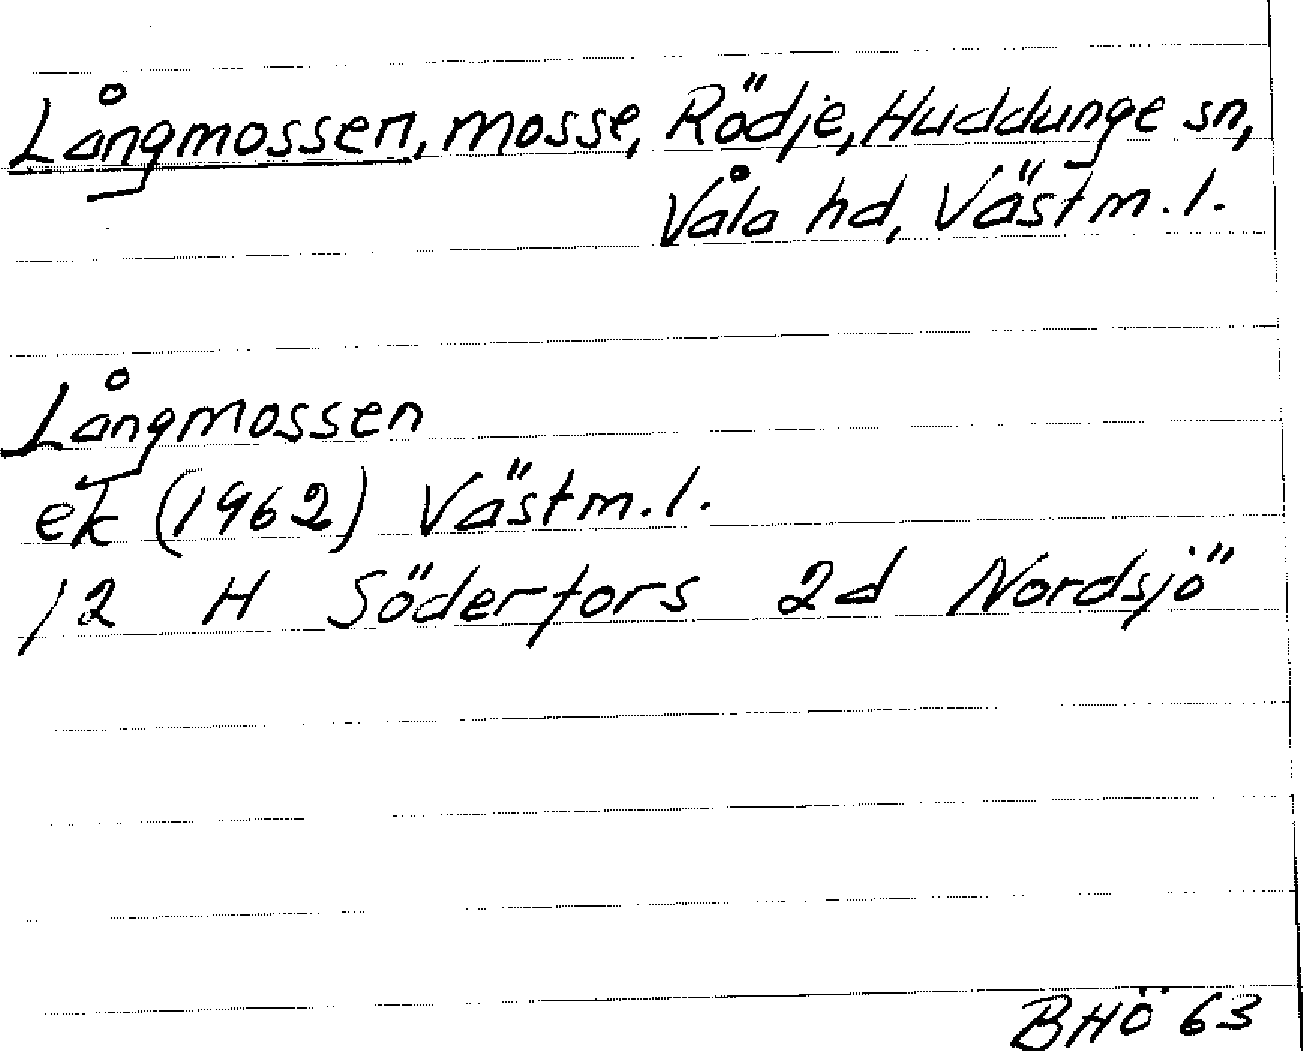 Långmossen, mosse, Rödje, Huddunge sn,
Våla hd, Västm. l.
Långmossen
ek (1962) Västm. l.
12 H Söderfors 2d Nordsjö
BHÖ 63